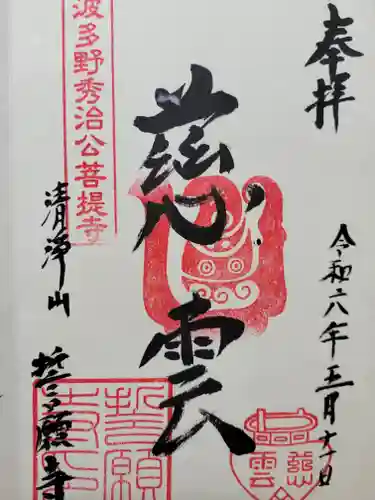 奉拝
令和六年五月
慈雲
波多野秀治公菩提寺
清浄山
誓願寺
誓願寺印
慈雲